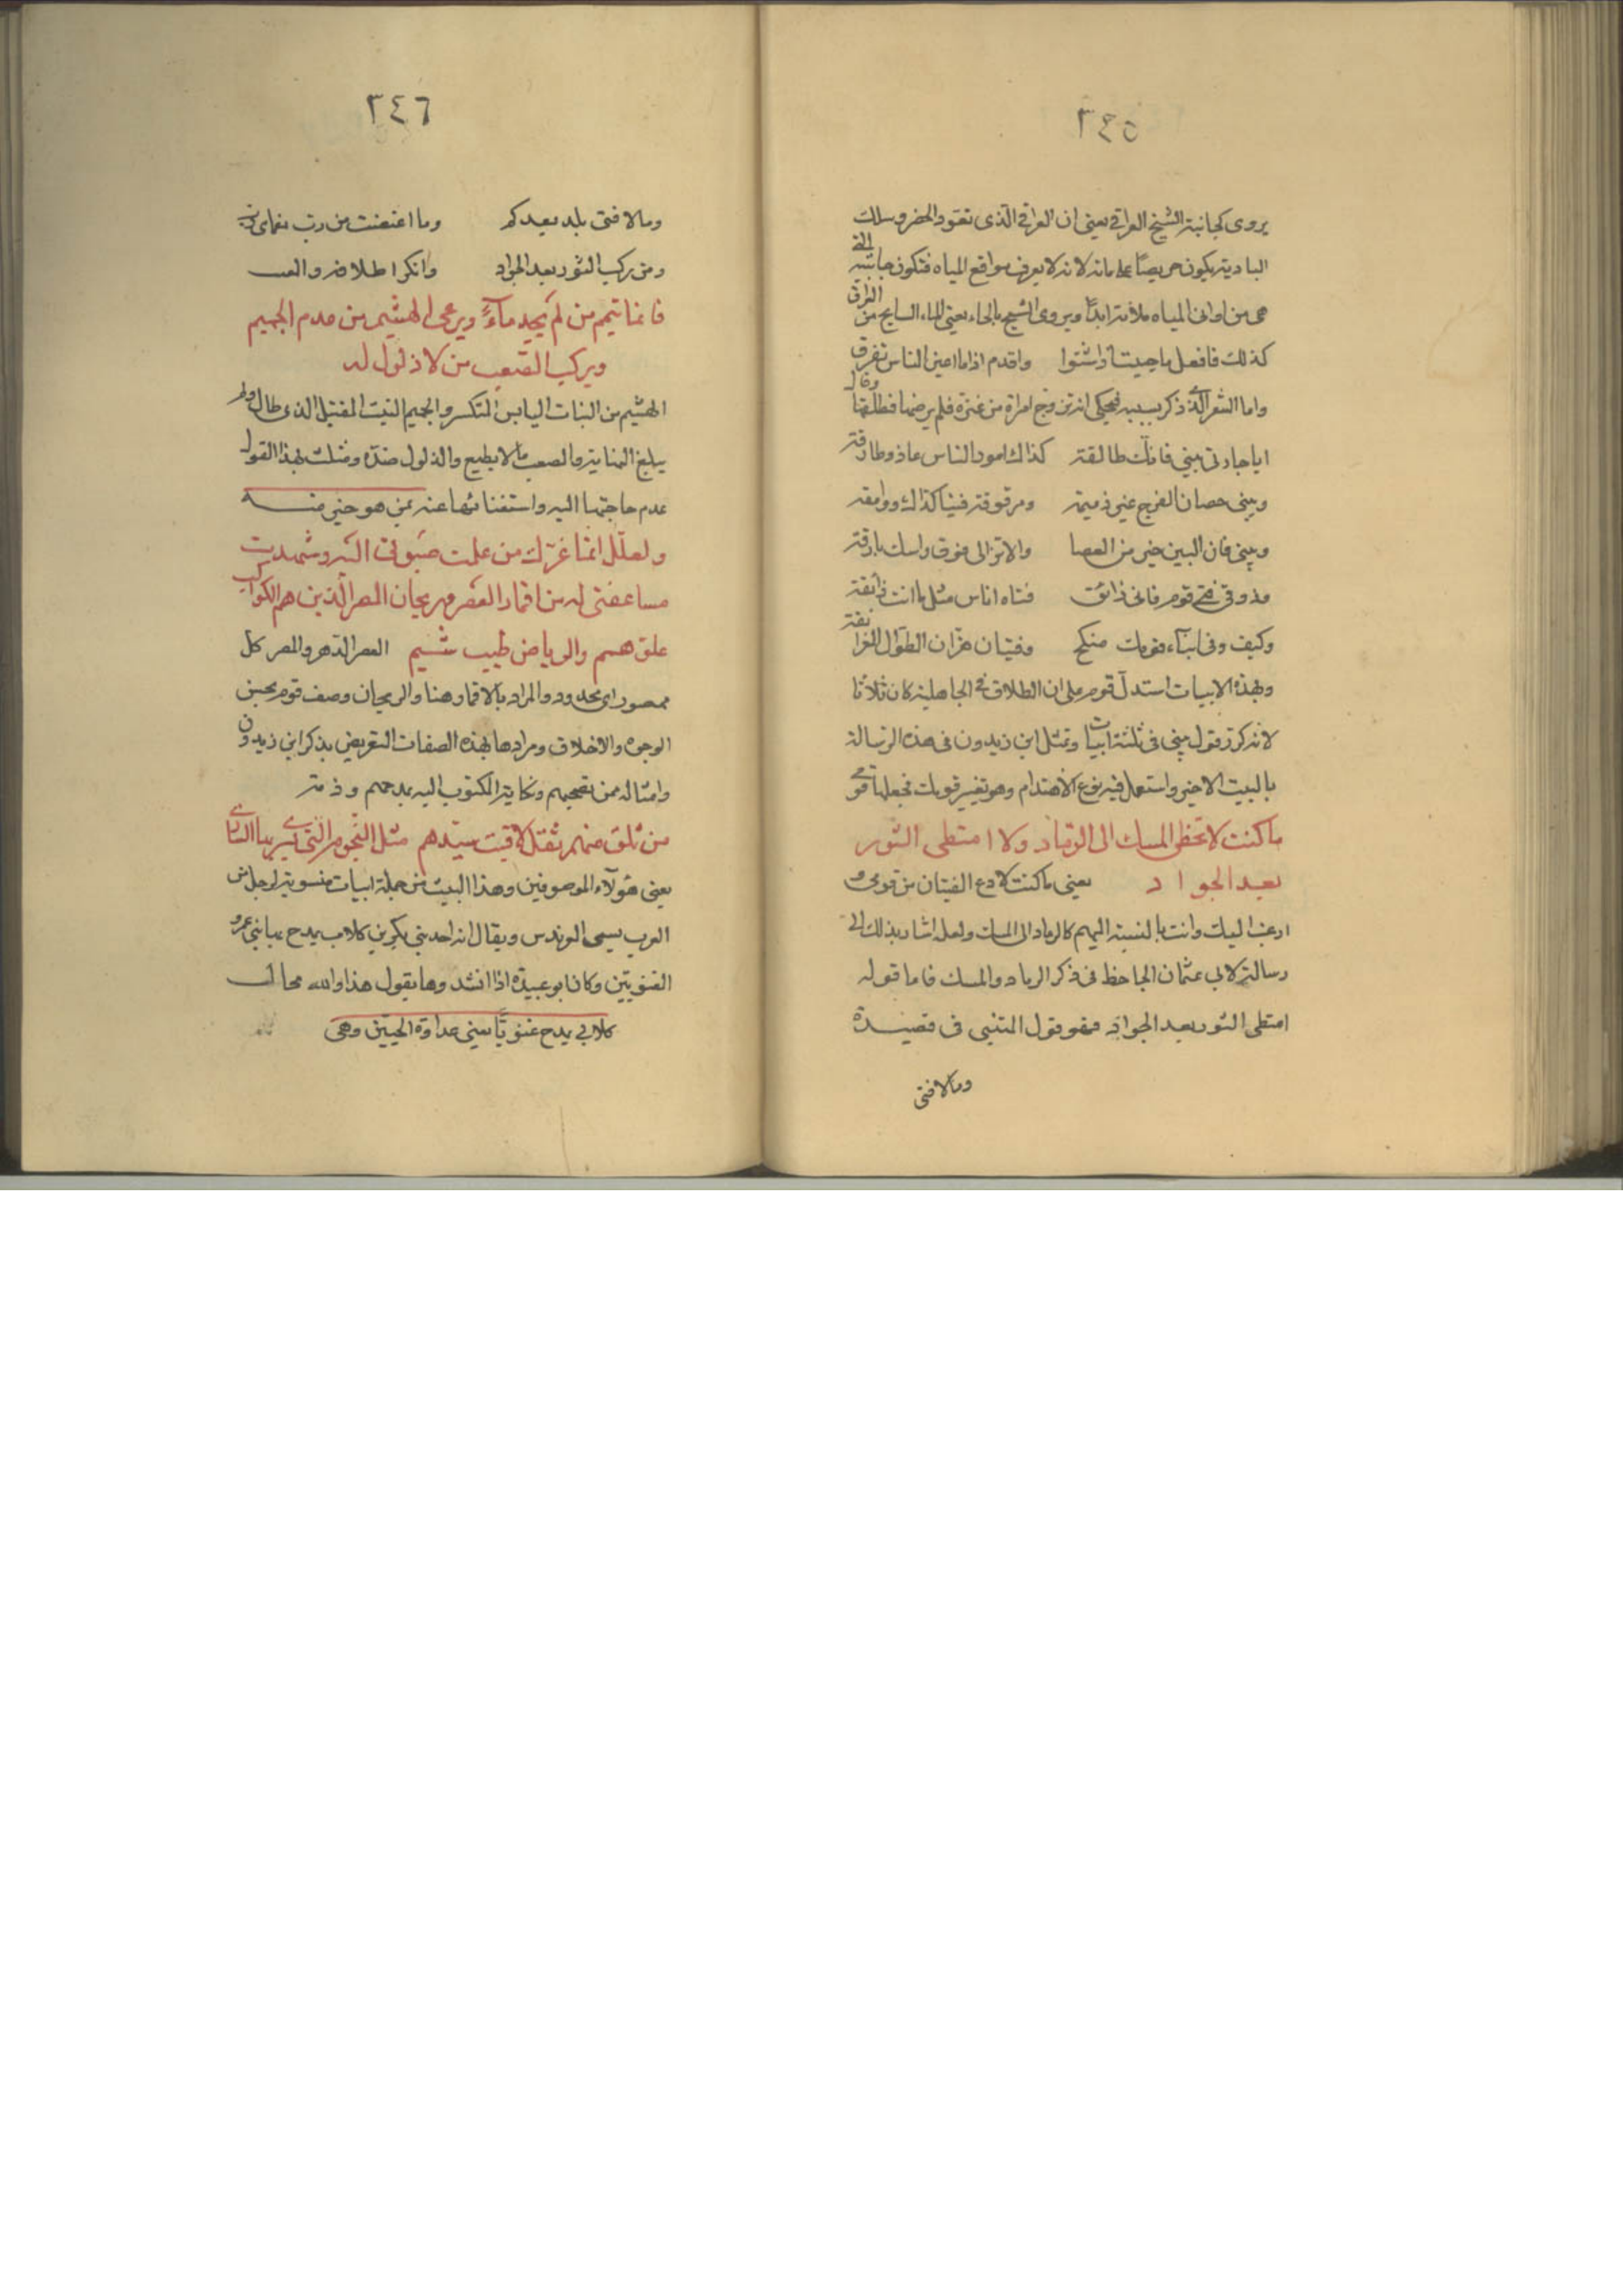 ٣٤٥
يروى كجابية الشيخ العراقي يعني ان العراقي الذي تعود الحضر وسلك
البادية يكون حريصًا على مائه لانه لا يعرف مواقع المياه فتكون جابيته التي
هي من اواني المياه ملأنة ابدًا ويروى السيح بالحاء يعني الماء السايح من العراق
كذلك فافعل ما حييت اذا شتوا واقدم اذا ما اعين الناس تفرق
واما الشعر الذي ذكر بسببه فيحكى انه تزوج امراة من عنزة فلم يرضها فطلقها وقال
ايا جارتي بيني فانك طالقة كذاك امور الناس غاد وطارقة
وبيني حصان الفرج غير ذميمة ومرموقة فينا كذاك ووامقة
وبيني فان البين خير من العصا والا تزالى فوق راسك بارقة
وذوقي فتى قوم فاني ذائق فتاة اناس مثل ما انت ذائقة
وكيف وفي ابناء قومك منكح وفتيان هزان الطوال الغرانقة
وبهذه الابيات استدل قوم على ان الطلاق في الجاهلية كان ثلاثا
لانه كرر قول بيني في ثلثة ابيات وتمثل ابن زيدون في هذه الرسالة
بالبيت الاخير واستعمل فيه نوع الاهتدام وهو تغيير قومك فجعلها قومي
ما كنت لاتخطى المسك الى الرماد ولا امتطى الثور
بعد الجواد يعني ما كنت لادع الفتيان من قومي و
ارغب اليك وانت بالنسبة اليهم كالرماد الى المسك ولعله اشار بذلك الى
رسالة لابي عثمان الجاحظ في ذكر الرماد والمسك فاما قوله
امتطى الثور بعد الجواد فهو قول المتنبي في قصيدة
وما لاقني
٣٤٦
وما لاقني بلد بعدكم وما اعتضت من رب نعماي رب
ومن ركب الثور بعد الجواد وانكر اظلافه والغبب
فانما تيمم من لم يجد ماءً ويرعى الهشيم من عدم الجميم
ويركب الصعب من لا ذلول له
الهشيم من النبات اليابس المتكسر والجميم النبت المقتبل الذي طال ولم
يبلغ النهاية والصعب ما لا يطيع والذلول ضده ومثلت بهذا القول
عدم حاجتها اليه واستغنائها عنه بمن هو خير منه
ولعلك انما غرك من علمت صبوتي اليه وشهدت
مساعفتي له من اقمار العصر وريحان المصر الذين هم الكواكب
علو همم والرياض طيب شيم العصر الدهر والمصر كل
ممصور اي محدود والمراد بالاقمار هنا والريحان وصف قوم بحسن
الوجوه والاخلاق ومرادها بهذه الصفات التعريض بذكر ابن زيدون
وامثاله ممن تصحبهم ونكاية المكتوب اليه بمدحهم وذمه
من تلق منهم تقل لاقيت سيدهم مثل النجوم التي يسري بها الساري
يعني هؤلاء الموصوفين وهذا البيت من جملة ابيات منسوبة لرجل من
العرب يسمى العرندس ويقال انه احد بني بكر بن كلاب يمدح بها بني عمرو
الغنويين وكان ابو عبيدة اذا انشدها يقول هذا والله محال
كلابي يمدح غنويًا يعني عداوة الحيين وهي